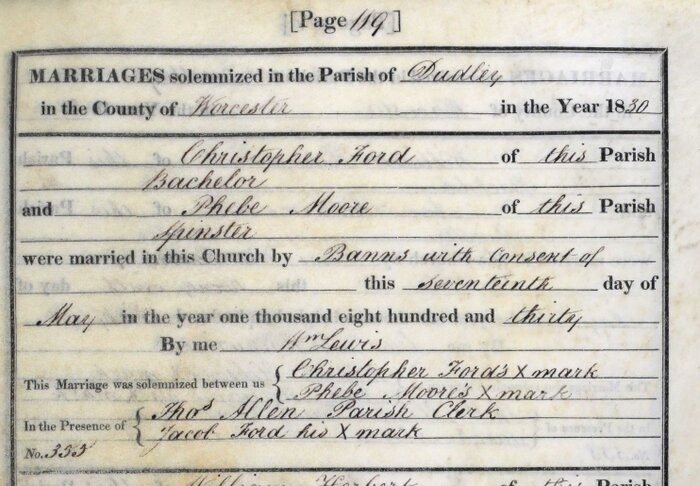 [Page 119]
MARRIAGES solemnized in the Parish of Dudley
in the County of Worcester in the Year 1830
Christopher Ford of this Parish
Bachelor
and Phebe Moore of this Parish
Spinster
were married in this Church by Banns with Consent of
this seventeenth day of
May in the year one thousand eight hundred and thirty
By me Wm Lewis
This Marriage was solemnized between us { Christopher Ford's X mark
Phebe Moore's X mark
In the Presence of { Thos Allen Parish Clerk
Jacob Ford his X mark
No. 355
William Herbert of this Parish